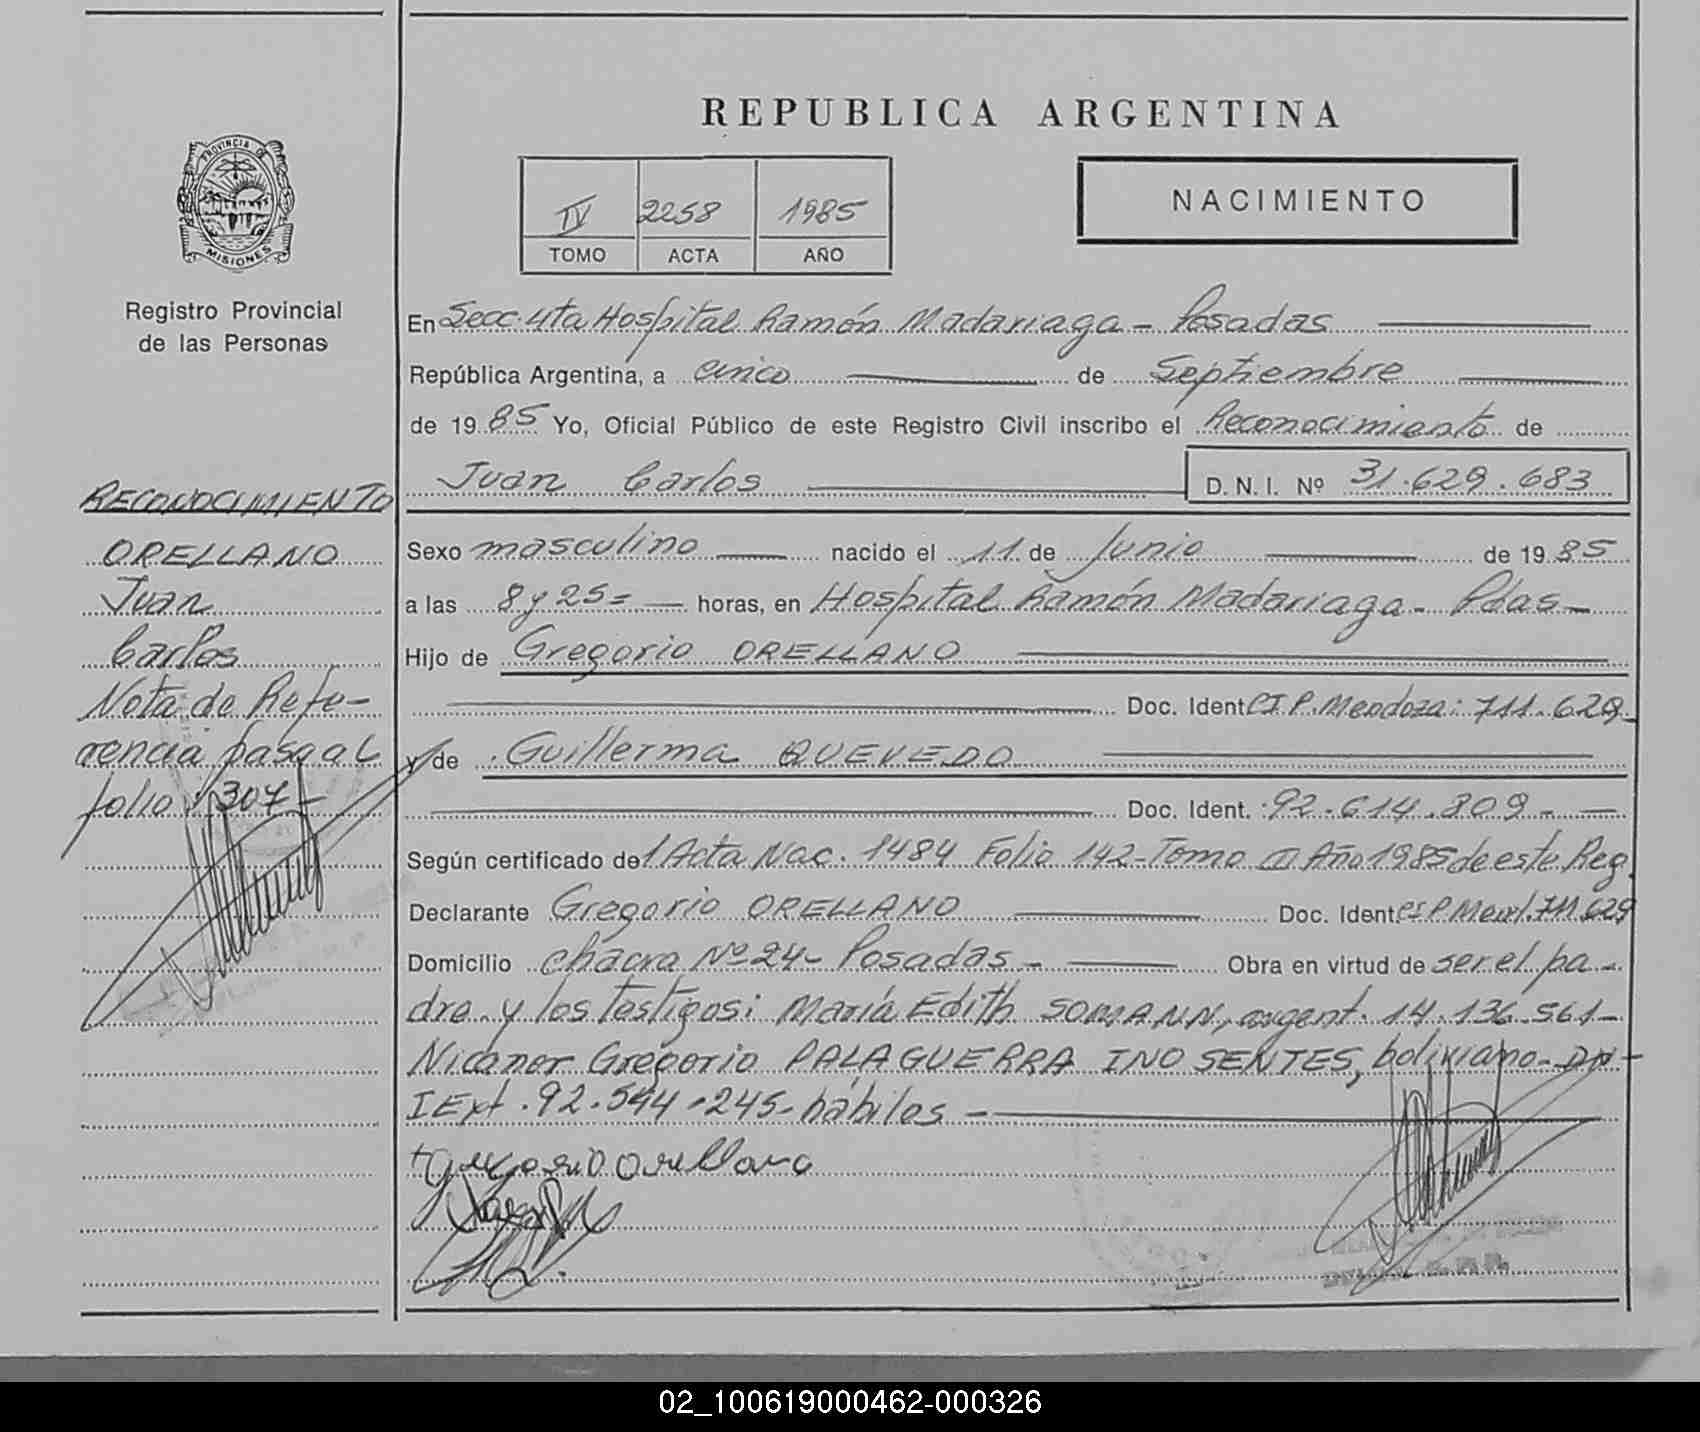 REPUBLICA ARGENTINA
PROVINCIA DE
MISIONES
Registro Provincial
de las Personas
IV 2258 1985
TOMO ACTA AÑO
NACIMIENTO
En Secc. 4ta Hospital Ramón Madariaga - Posadas
República Argentina, a cinco de Septiembre
de 1985 Yo, Oficial Público de este Registro Civil inscribo el Reconocimiento de
Juan Carlos D. N. I. Nº 31.629.683
RECONOCIMIENTO
ORELLANO
Juan
Carlos
Nota de Refe-
rencia pasa al
folio 307-
Sexo masculino nacido el 11 de Junio de 1985
a las 8 y 25= horas, en Hospital Ramón Madariaga - Pdas-
Hijo de Gregorio ORELLANO
Doc. Ident. CI P. Mendoza: 711.629-
y de Guillerma QUEVEDO
Doc. Ident. 92.614.809-
Según certificado de Acta Nac. 1484 Folio 142-Tomo Año 1985 de este Reg.
Declarante Gregorio ORELLANO Doc. Ident. 711.629
Domicilio chacra Nº 24- Posadas- Obra en virtud de ser el pa-
dre y los testigos: María Edith SOMANN, argent. 14.136.561-
Nicanor Gregorio PALAGUERRA INOSENTES, boliviano- DN-
IExt. 92.544.245- hábiles -
Gregorio Orellano
02_100619000462-000326